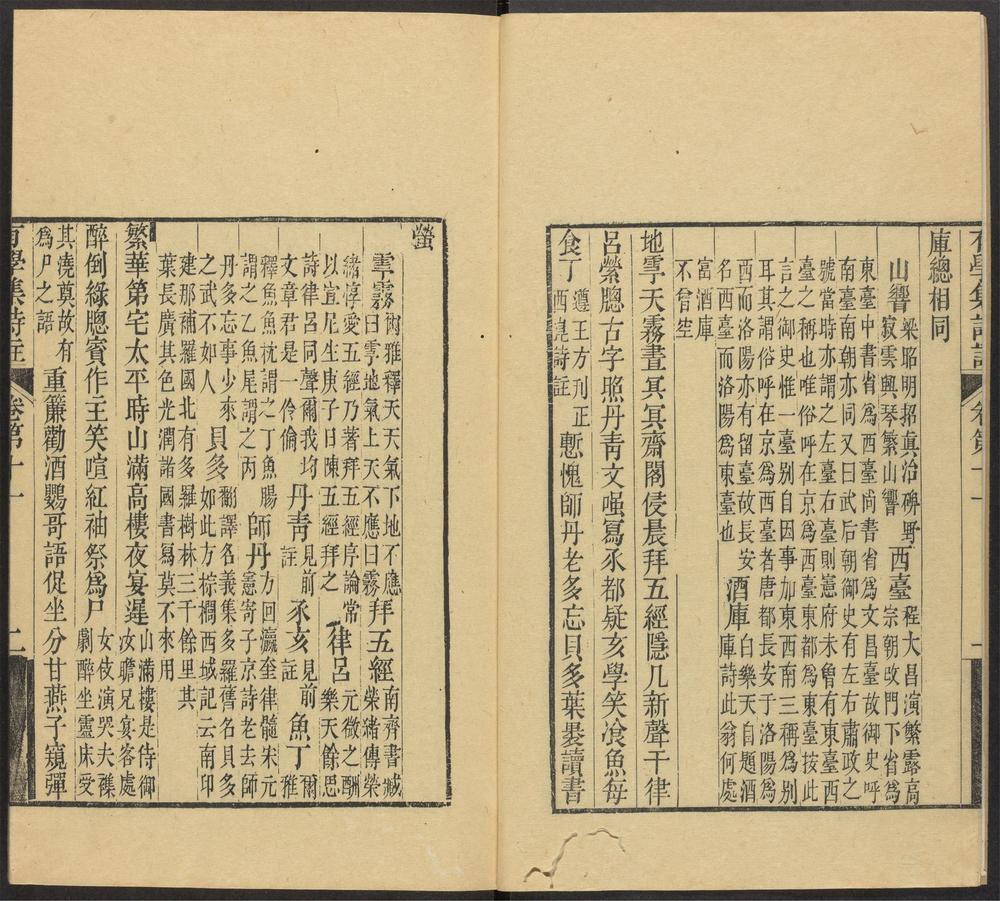 有學集詩註 卷第十一 一
庫總相同
山響 梁昭明招真治碑野寂雲興琴繁山響 西臺 程大昌演繁露高宗朝改門下省爲
東臺中書省爲西臺尚書省爲文昌臺故御史呼
南臺南朝亦同又曰武后朝御史有左右肅政之
號當時亦謂之左臺右臺則憲府未曾有東臺西
臺之稱也唯俗呼在京爲西臺東都爲東臺按此
言之御史惟一臺別自因事加東西南三稱爲別
耳其謂俗呼在京爲西臺者唐都長安于洛陽爲
西而洛陽亦有留臺故長安名西臺而洛陽爲東臺也 酒庫 白樂天自題酒庫詩此翁何處
富酒庫
不曾空
地雩天霧晝冥冥齋閣侵晨拜五經隱几新聲千律
呂縈牕古字照丹青文強寫豕都疑亥學笑飡魚每
食丁 遵王方刋正酉晁詩註 慙愧師丹老多忘貝多葉㬥讀書
螢
雩霧 爾雅釋天天氣下地不應曰雩地氣上天不應曰霧 拜五經 南齊書臧榮緒傳榮
緒惇愛五經乃著拜五經序論常以宣尼生庚子日陳五經拜之 律呂 元微之酬樂天餘思
詩律呂同聲爾我均文章君是一伶倫 丹青 見前註 豕亥 見前註 魚丁 爾雅
釋魚魚枕謂之丁魚腸謂之乙魚尾謂之丙 師丹 方回瀛奎律髓宋元憲寄子京詩老去師
丹多忘事少來之武不如人 貝多 翻譯名義集多羅舊名貝多如此方棕櫚西域記云南印
建那補羅國北有多羅樹林三千餘里其
葉長廣其色光潤諸國書寫莫不來用
繁華第宅太平時山滿高樓夜宴遲 山滿樓是侍御汝瞻兄宴客處
醉倒綠牕賓作主笑喧紅袖祭爲尸 女伎演哭夫醮劇醉坐靈床受
其澆奠故有爲尸之語 重簾勸酒鸚哥語促坐分甘燕子窺彈
有學集詩註 卷第十一 二